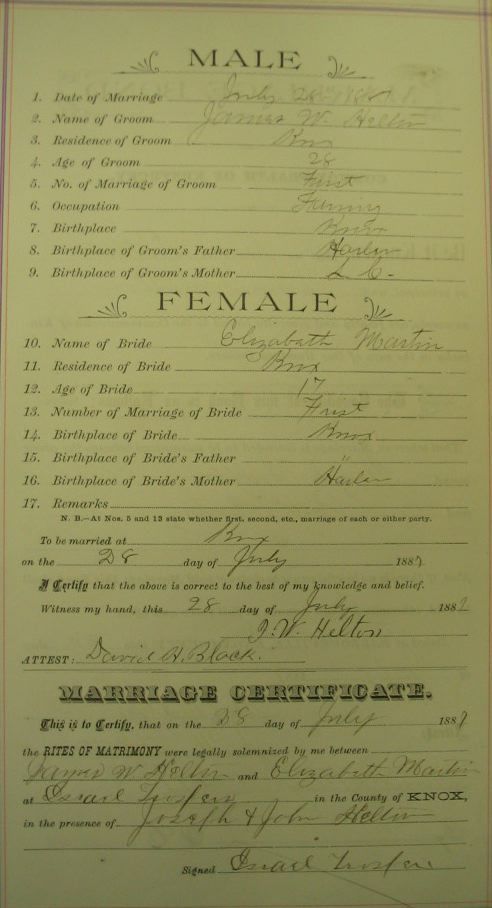 MALE
1. Date of Marriage July 28th 188
2. Name of Groom James W. Helton
3. Residence of Groom Knox
4. Age of Groom 28
5. No. of Marriage of Groom First
6. Occupation Farming
7. Birthplace Knox
8. Birthplace of Groom's Father Harlan
9. Birthplace of Groom's Mother
FEMALE
10. Name of Bride Elizabeth Martin
11. Residence of Bride Knox
12. Age of Bride 17
13. Number of Marriage of Bride First
14. Birthplace of Bride Knox
15. Birthplace of Bride's Father "
16. Birthplace of Bride's Mother Harlan
17. Remarks
N. B.—At Nos. 5 and 13 state whether first, second, etc., marriage of each or either party.
To be married at Knox
on the 28 day of July 188
I Certify that the above is correct to the best of my knowledge and belief.
Witness my hand, this 28 day of July 188
J. W. Helton
ATTEST: David H. Black.
MARRIAGE CERTIFICATE.
This is to Certify, that on the 28 day of July 188
the RITES OF MATRIMONY were legally solemnized by me between
James W. Helton and Elizabeth Martin
at Israel in the County of KNOX,
in the presence of Joseph & John Helton
Signed Israel